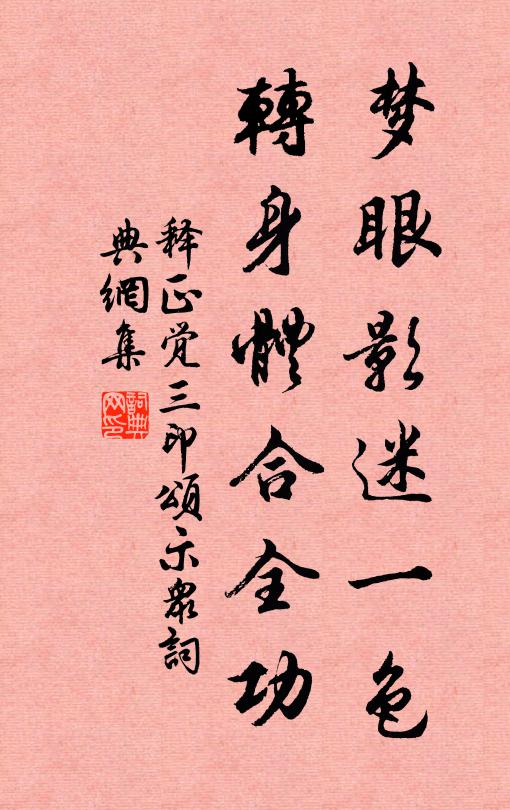 梦眼影迷一色
轉身體合全功
释正觉三印頌示衆詞
典網集
詞典
网印